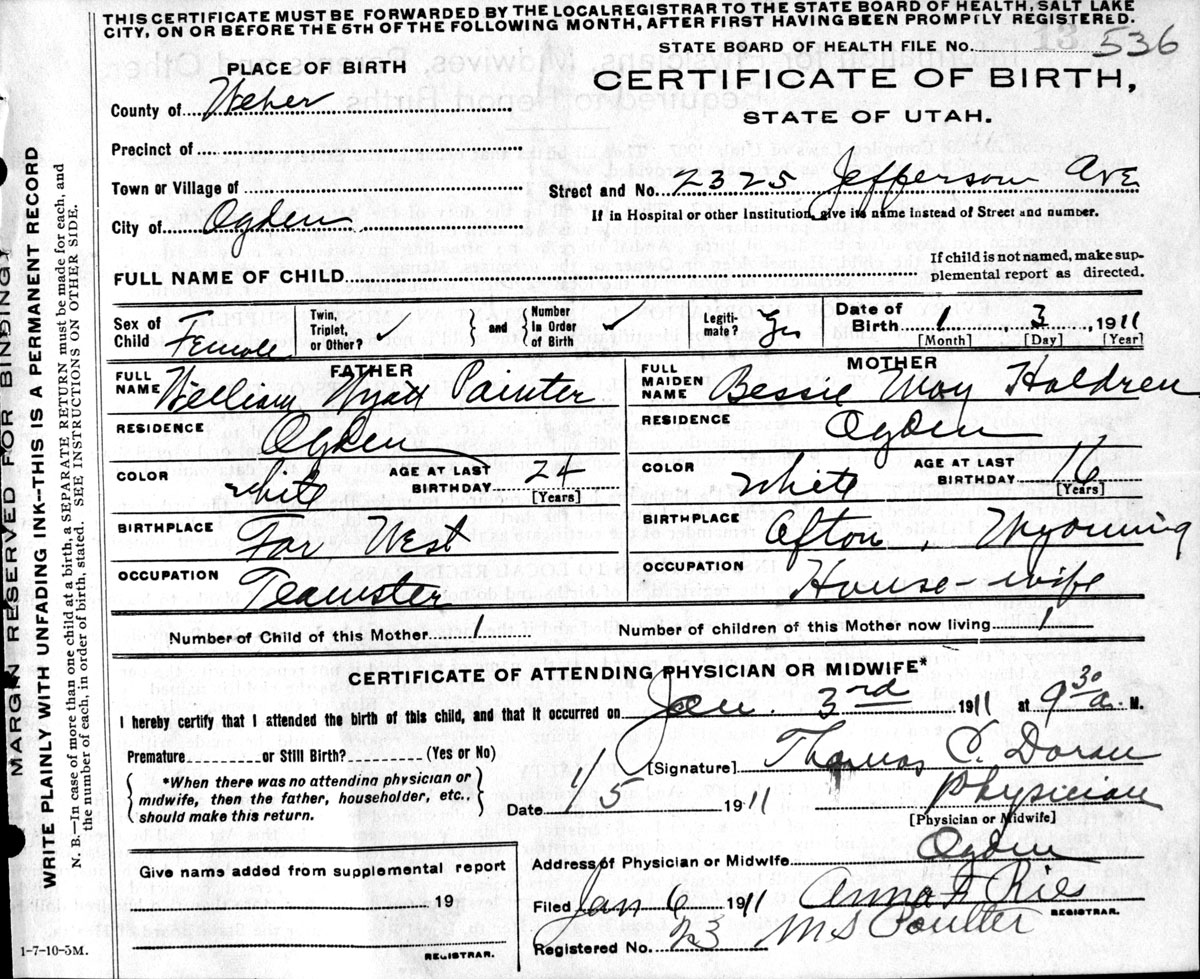 THIS CERTIFICATE MUST BE FORWARDED BY THE LOCALREGISTRAR TO THE STATE BOARD OF HEALTH, SALT LAKE
CITY, ON OR BEFORE THE 5TH OF THE FOLLOWING MONTH, AFTER FIRST HAVING BEEN PROMPLY REGISTERED.
STATE BOARD OF HEALTH FILE No. 536
PLACE OF BIRTH
CERTIFICATE OF BIRTH,
STATE OF UTAH.
County of Weber
Precinct of
Town or Village of
Street and No. 2325 Jefferson Ave
City of Ogden
If in Hospital or other Institution, give its name instead of Street and number.
FULL NAME OF CHILD
If child is not named, make sup-
plemental report as directed.
Sex of Child Female
Twin, Triplet, or Other? ✓
and
Number In Order of Birth ✓
Legiti-mate? Yes
Date of Birth 1 3, 1911
[Month] [Day] [Year]
FATHER
FULL NAME William Wyatt Painter
RESIDENCE Ogden
COLOR white
AGE AT LAST BIRTHDAY 24
[Years]
BIRTHPLACE Far West
OCCUPATION Teamster
MOTHER
FULL MAIDEN NAME Bessie May Holdren
RESIDENCE Ogden
COLOR White
AGE AT LAST BIRTHDAY 16
[Years]
BIRTHPLACE Afton, Wyoming
OCCUPATION House-wife
Number of Child of this Mother 1
Number of children of this Mother now living 1
CERTIFICATE OF ATTENDING PHYSICIAN OR MIDWIFE*
I hereby certify that I attended the birth of this child, and that it occurred on Jan. 3rd 1911 at 9 30 a. M.
Premature or Still Birth? (Yes or No)
*When there was no attending physician or
midwife, then the father, householder, etc.,
should make this return.
[Signature] Thomas C. Doran
Date 1/5 1911
Physician
[Physician or Midwife]
Address of Physician or Midwife Ogden
Give name added from supplemental report
19
REGISTRAR.
Filed Jan 6 1911 Anna F Ries
REGISTRAR.
Registered No. 23 M S Poulter
1-7-10-5M.
MARGIN RESERVED FOR BINSING)
WRITE PLAINLY WITH UNFADING INK--THIS IS A PERMANENT RECORD
N. B.—In case of more than one child at a birth, a SEPARATE RETURN must be made for each, and
the number of each, in order of birth, stated. SEE INSTRUCTIONS ON OTHER SIDE.